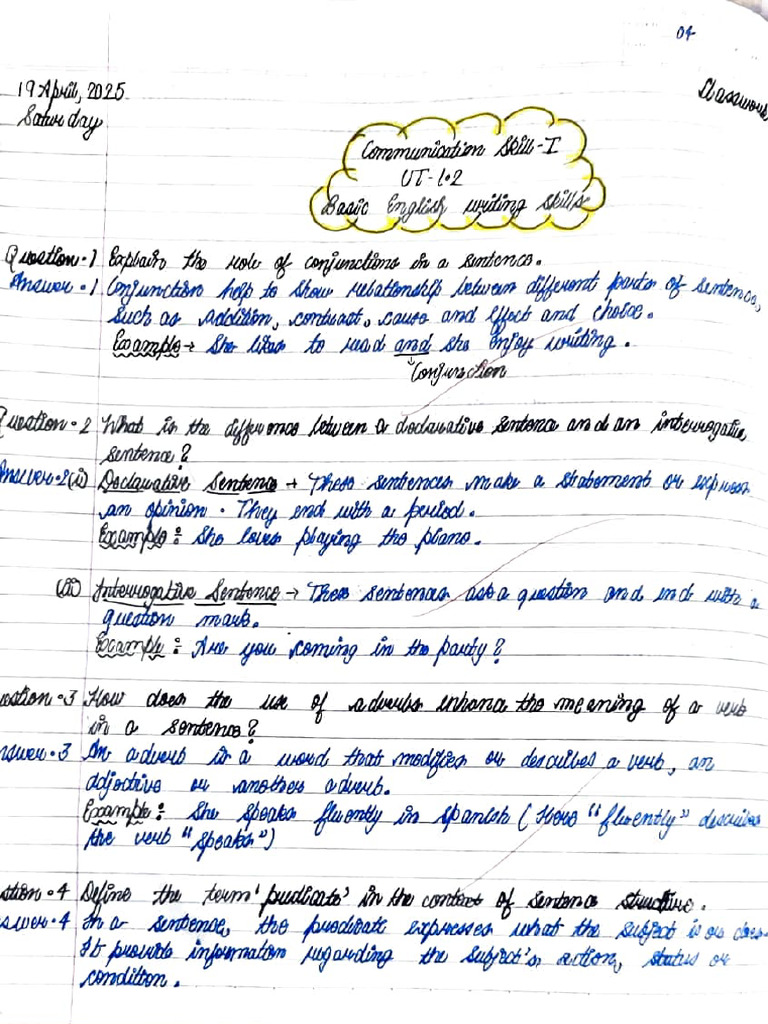 04
19 April, 2025
Classwork
Saturday
Communication Skill-I
UT-1.2
Basic English writing skills
Question.1 Explain the role of conjunctions in a sentence.
Answer.1 Conjunction help to show relationship between different parts of sentence,
such as addition, contrast, cause and effect and choice.
Example → She likes to read and she enjoy writing.
Conjunction
Question.2 What is the difference between a declarative sentence and an interrogative
sentence?
Answer.2 (i) Declarative Sentence → These sentences make a statement or express
an opinion. They end with a period.
Example: She loves playing the piano.
(ii) Interrogative Sentence → These sentences ask a question and end with a
question mark.
Example: Are you coming in the party?
estion.3 How does the use of adverbs enhance the meaning of a verb
in a sentence?
nswer.3 An adverb is a word that modifies or describes a verb, an
adjective or another adverb.
Example: She speaks fluently in spanish (Here "fluently" describes
the verb "speaks")
stion.4 Define the term 'predicate' in the context of sentence structure.
swer.4 In a sentence, the predicate expresses what the subject is or does.
It provide information regarding the subject's action, status or
condition.